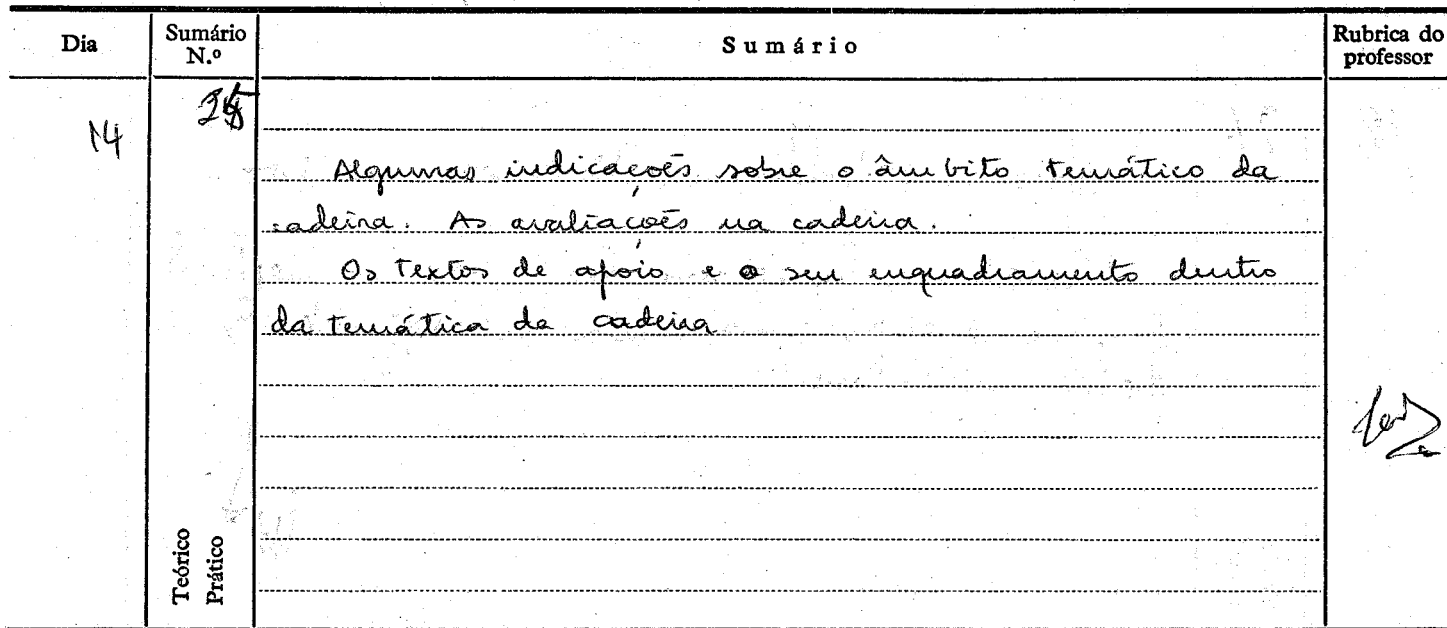 Dia
Sumário N.º
Sumário
Rubrica do professor
14
Algumas indicações sobre o âmbito temático da
cadeira. As avaliações na cadeira.
Os textos de apoio e o seu enquadramento dentro
da temática da cadeira
Teórico
Prático